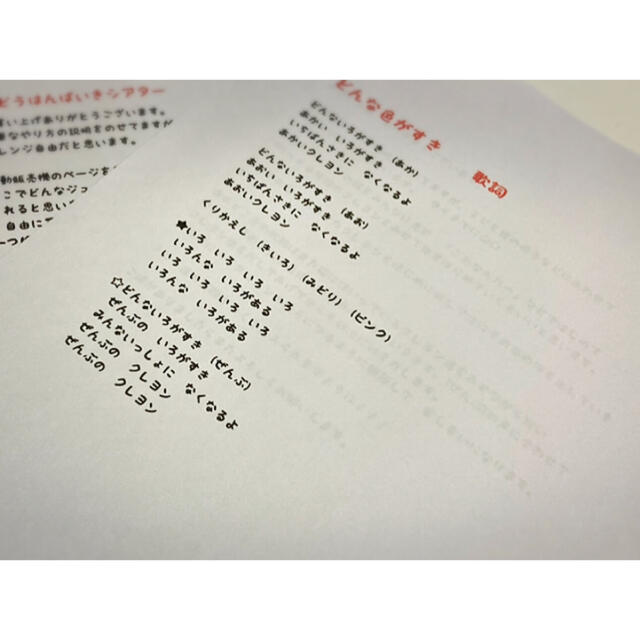 どうはんばいきシアター
い上げありがとうございます。
なやり方の説明をのせてますが
レンジ自由だと思います。
動販売機のページを
こでどんなジュ
れると思い
自由に
一つ
どんな色がすき　歌詞
どんないろがすき　(あか)
あかい　いろがすき
いちばんさきに　なくなるよ
あかいクレヨン
どんないろがすき　(あお)
あおい　いろがすき
いちばんさきに　なくなるよ
あおいクレヨン
くりかえし　(きいろ)　(みどり)　(ピンク)
★いろ　いろ　いろ　いろ
いろんな　いろがある
いろ　いろ　いろ　いろ
いろんな　いろがある
☆どんないろがすき　(ぜんぶ)
ぜんぶの　いろがすき
みんないっしょに　なくなるよ
ぜんぶの　クレヨン
ぜんぶの　クレヨン